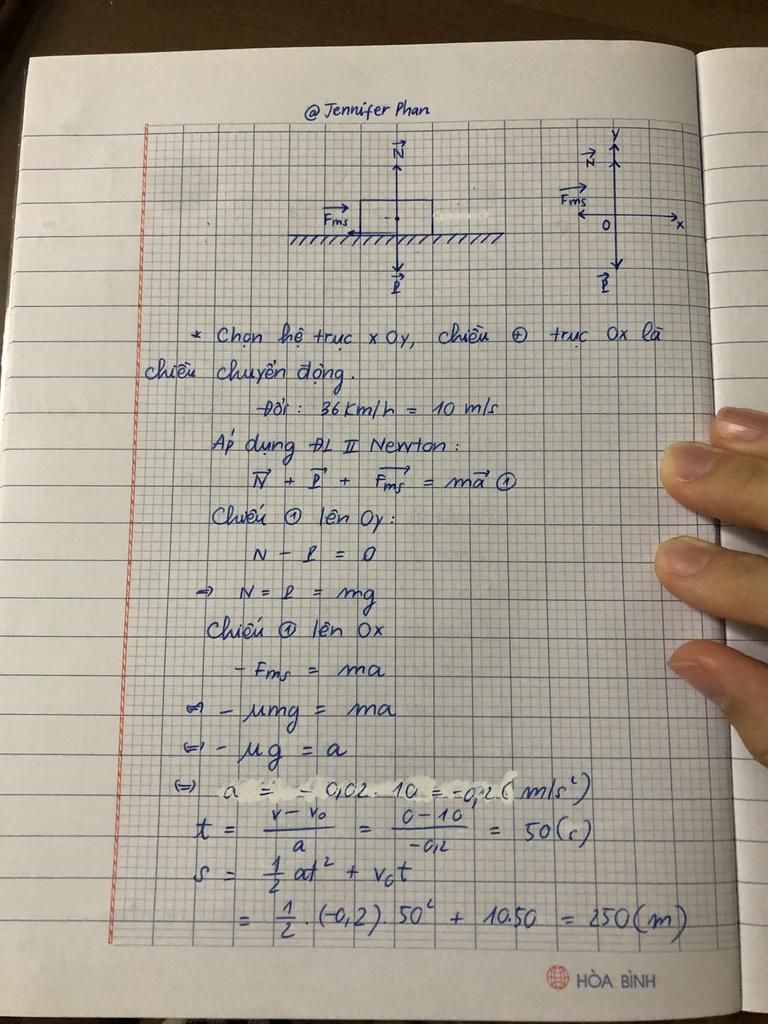 @Jennifer Phan
N
Fms
P
y
N
Fms
O
x
P
* Chọn hệ trục xOy, chiều ⊕ trục Ox là
chiều chuyển động.
Đổi: 36km/h = 10 m/s
Áp dụng ĐL II Newton:
N + P + Fms = ma ①
Chiếu ① lên Oy:
N - P = 0
=> N = P = mg
Chiếu ① lên Ox
- Fms = ma
<=> - μmg = ma
<=> - μg = a
<=> a = - 0,02. 10 = -0,2 (m/s²)
t = (v - v₀)/a = (0 - 10)/(-0,2) = 50(s)
s = 1/2 at² + v₀t
= 1/2 . (-0,2). 50² + 10.50 = 250(m)
HÒA BÌNH